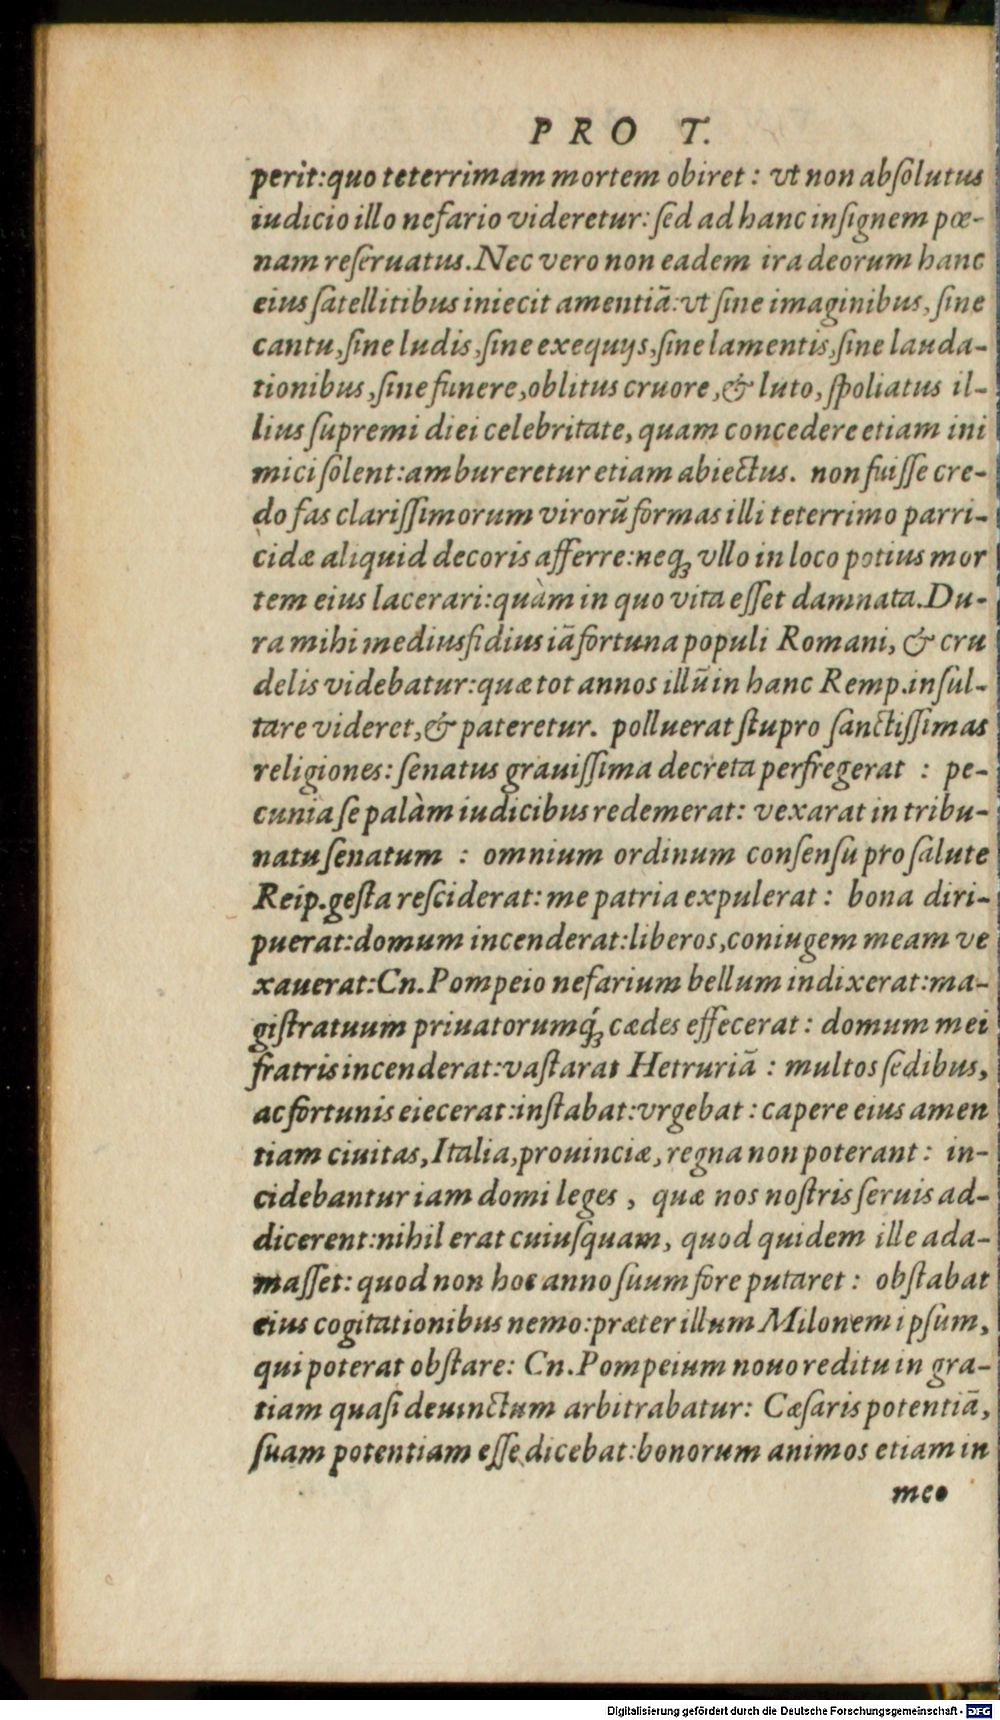 PRO T.
perit:quo teterrimam mortem obiret: vt non absolutus
iudicio illo nefario videretur: sed ad hanc insignem pœ-
nam reseruatus. Nec vero non eadem ira deorum hanc
eius satellitibus iniecit amentiã: vt sine imaginibus, sine
cantu, sine ludis, sine exequijs, sine lamentis, sine lauda-
tionibus, sine funere, oblitus cruore, & luto, spoliatus il-
lius supremi diei celebritate, quam concedere etiam ini
mici solent: ambureretur etiam abiectus. non fuisse cre-
do fas clarissimorum virorũ formas illi teterrimo parri-
cidæ aliquid decoris afferre: neq; vllo in loco potius mor
tem eius lacerari: quàm in quo vita esset damnata. Du-
ra mihi mediusfidius iã fortuna populi Romani, & cru
delis videbatur: quæ tot annos illũ in hanc Remp. insul-
tare videret, & pateretur. polluerat stupro sanctissimas
religiones: senatus grauissima decreta perfregerat : pe-
cunia se palàm iudicibus redemerat: vexarat in tribu-
natu senatum : omnium ordinum consensu pro salute
Reip. gesta resciderat: me patria expulerat: bona diri-
puerat: domum incenderat: liberos, coniugem meam ve
xauerat: Cn. Pompeio nefarium bellum indixerat: ma-
gistratuum priuatorumq́; cædes effecerat: domum mei
fratris incenderat: vastarat Hetruriã : multos sedibus,
ac fortunis eiecerat: instabat: vrgebat: capere eius amen
tiam ciuitas, Italia, prouinciæ, regna non poterant: in-
cidebantur iam domi leges, quæ nos nostris seruis ad-
dicerent: nihil erat cuiusquam, quod quidem ille ada-
masset: quod non hoc anno suum fore putaret: obstabat
eius cogitationibus nemo: præter illum Milonem ipsum,
qui poterat obstare: Cn. Pompeium nouo reditu in gra-
tiam quasi deuinctum arbitrabatur: Cæsaris potentiã,
suam potentiam esse dicebat: bonorum animos etiam in
meo
Digitalisierung gefördert durch die Deutsche Forschungsgemeinschaft - DFG